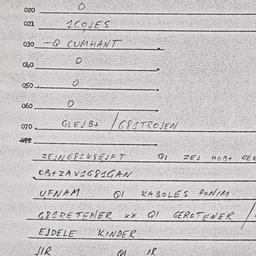 020 0
021 1COJES
030 -Q CUMHANT
040 0
050 0
060 0
070 GLEJB+ / G81TROJEN
ZEJNG81K8EJFT QI ZEJ HOB+
OB+ZAV1G81GAN
UFNAM QI KABOLES PONIM
G81RETENER xx QI GEROTENER /
EJDELE KINDER
JIR QI IR